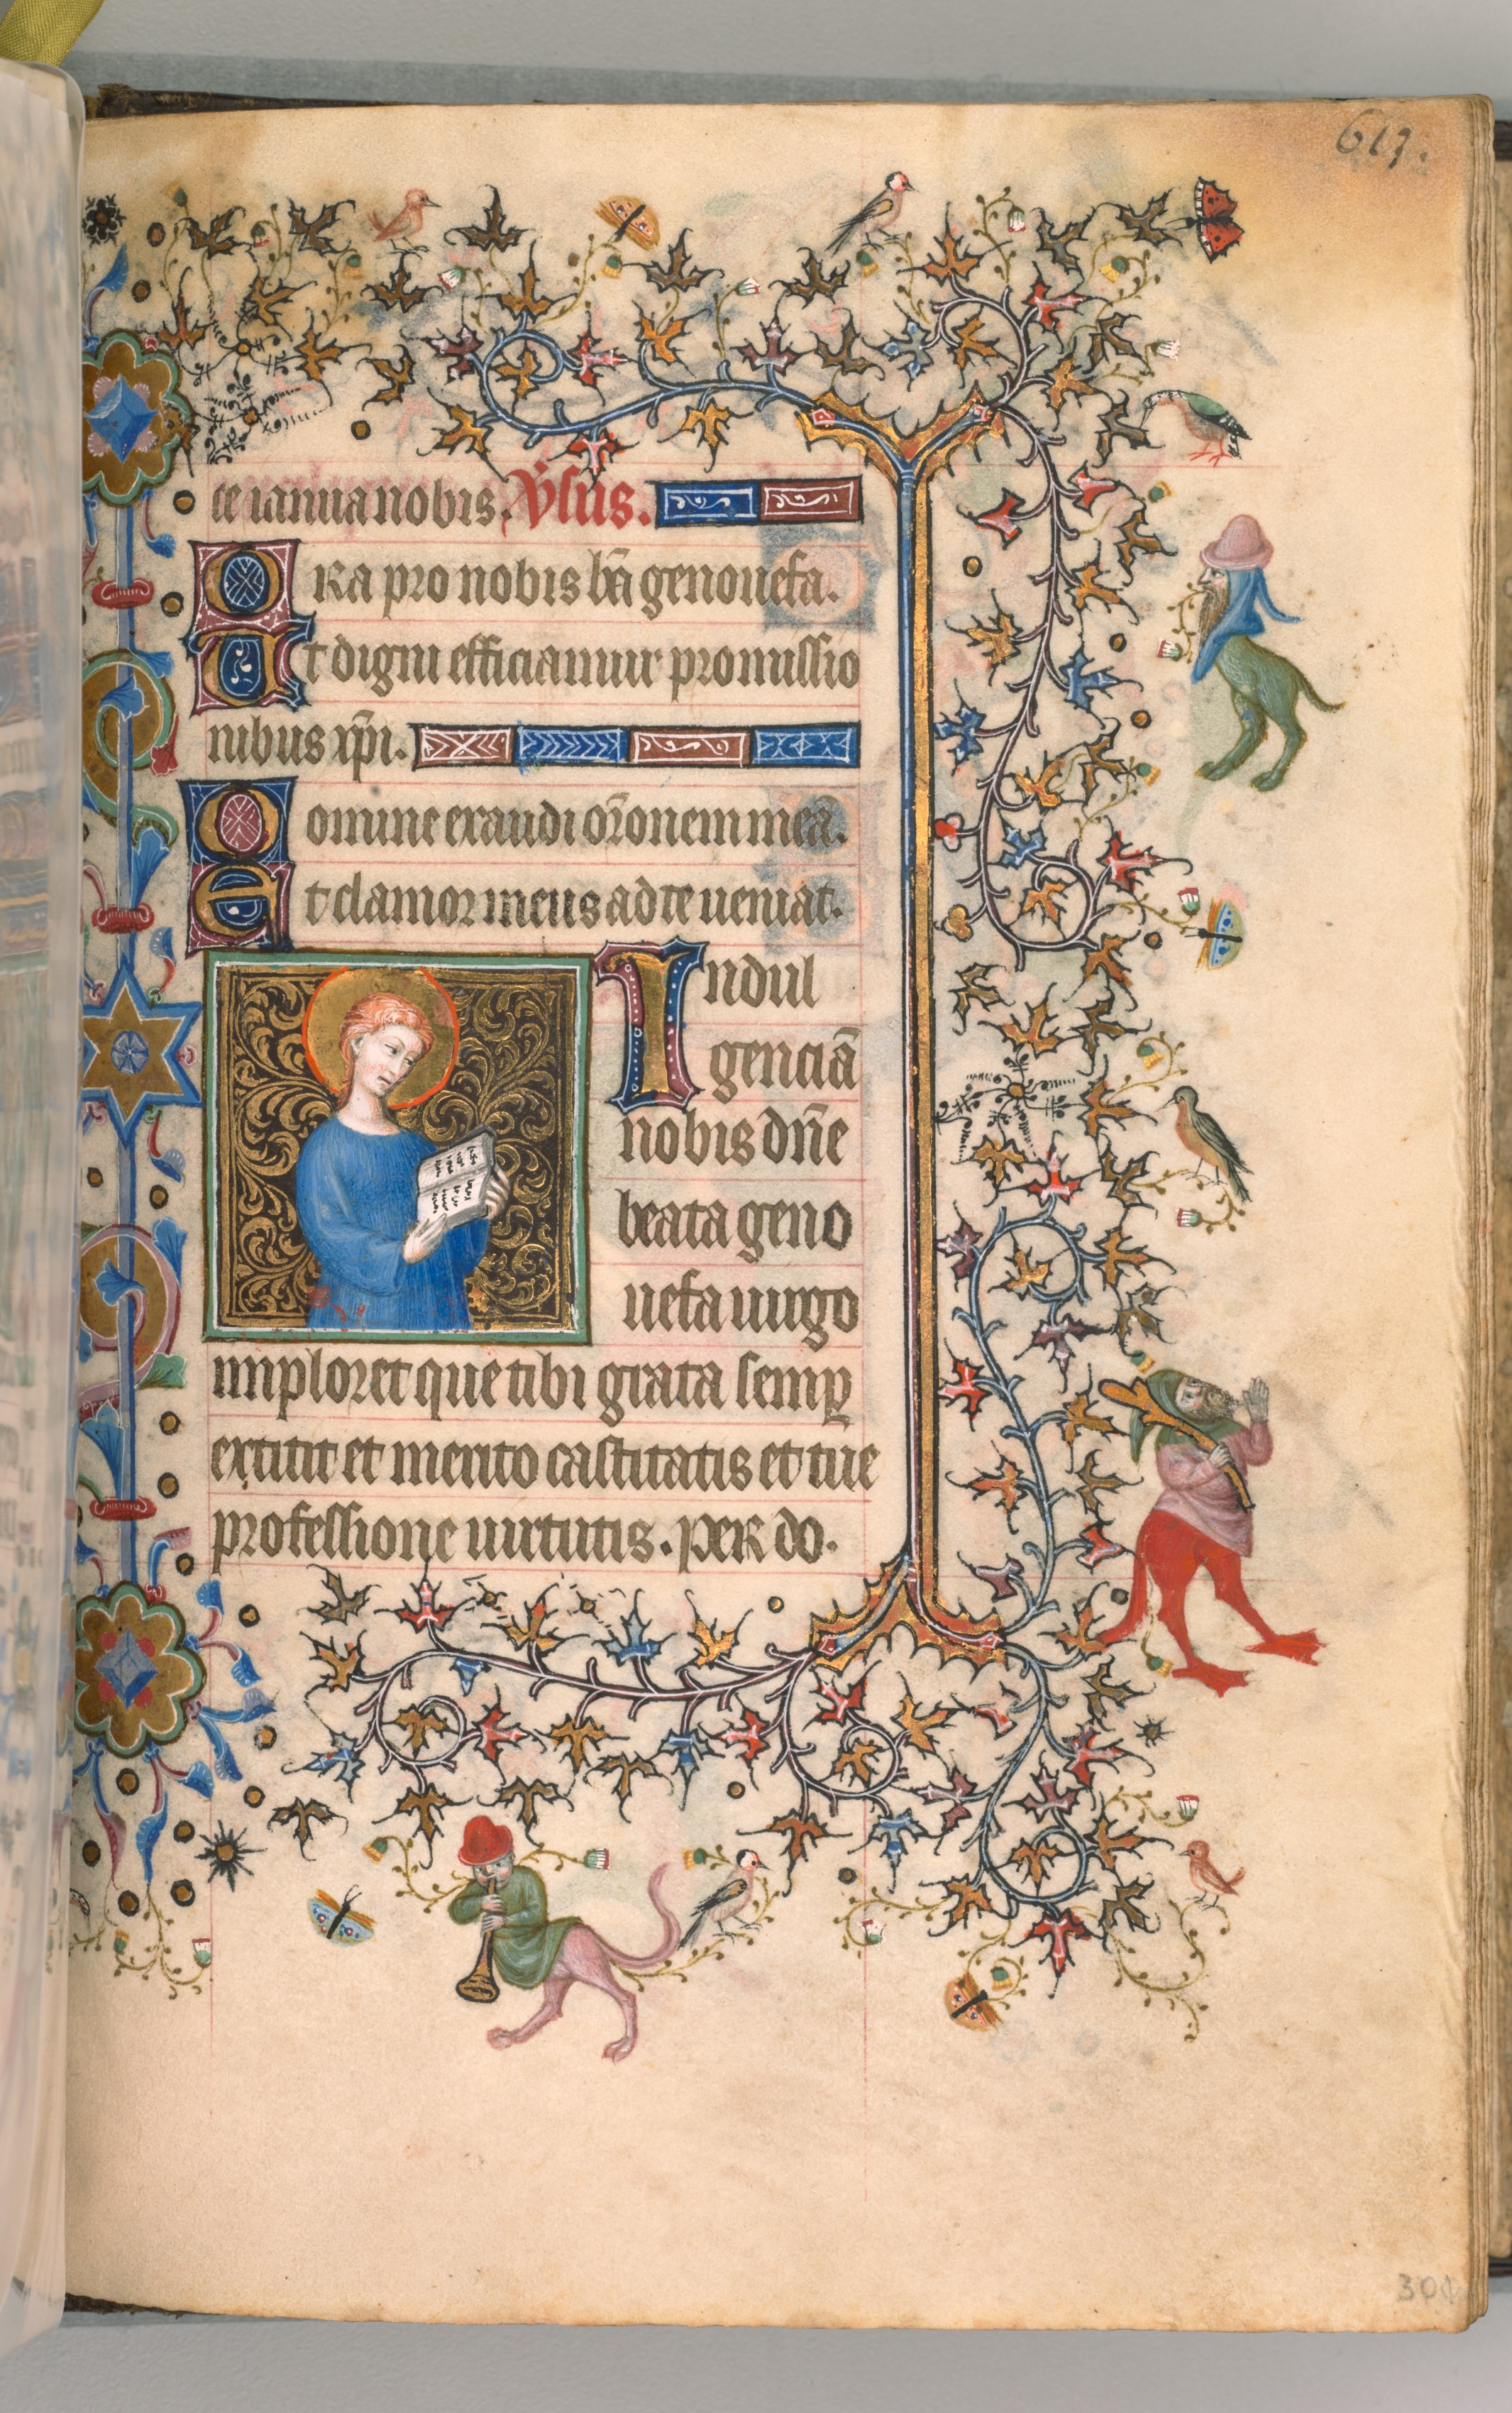 617.
te ianua nobis. Vsus.
ORa pro nobis bā genouefa.
Ut digni efficiamur promissio
nibus xp̄i.
Domine exaudi or̄onem meā.
Et clamor meus ad te ueniat.
Indul
genciā
nobis dn̄e
beata geno
uefa uirgo
imploret que tibi grata semꝑ
extitit et merito castitatis et tue
professione uirtutis. PER do.